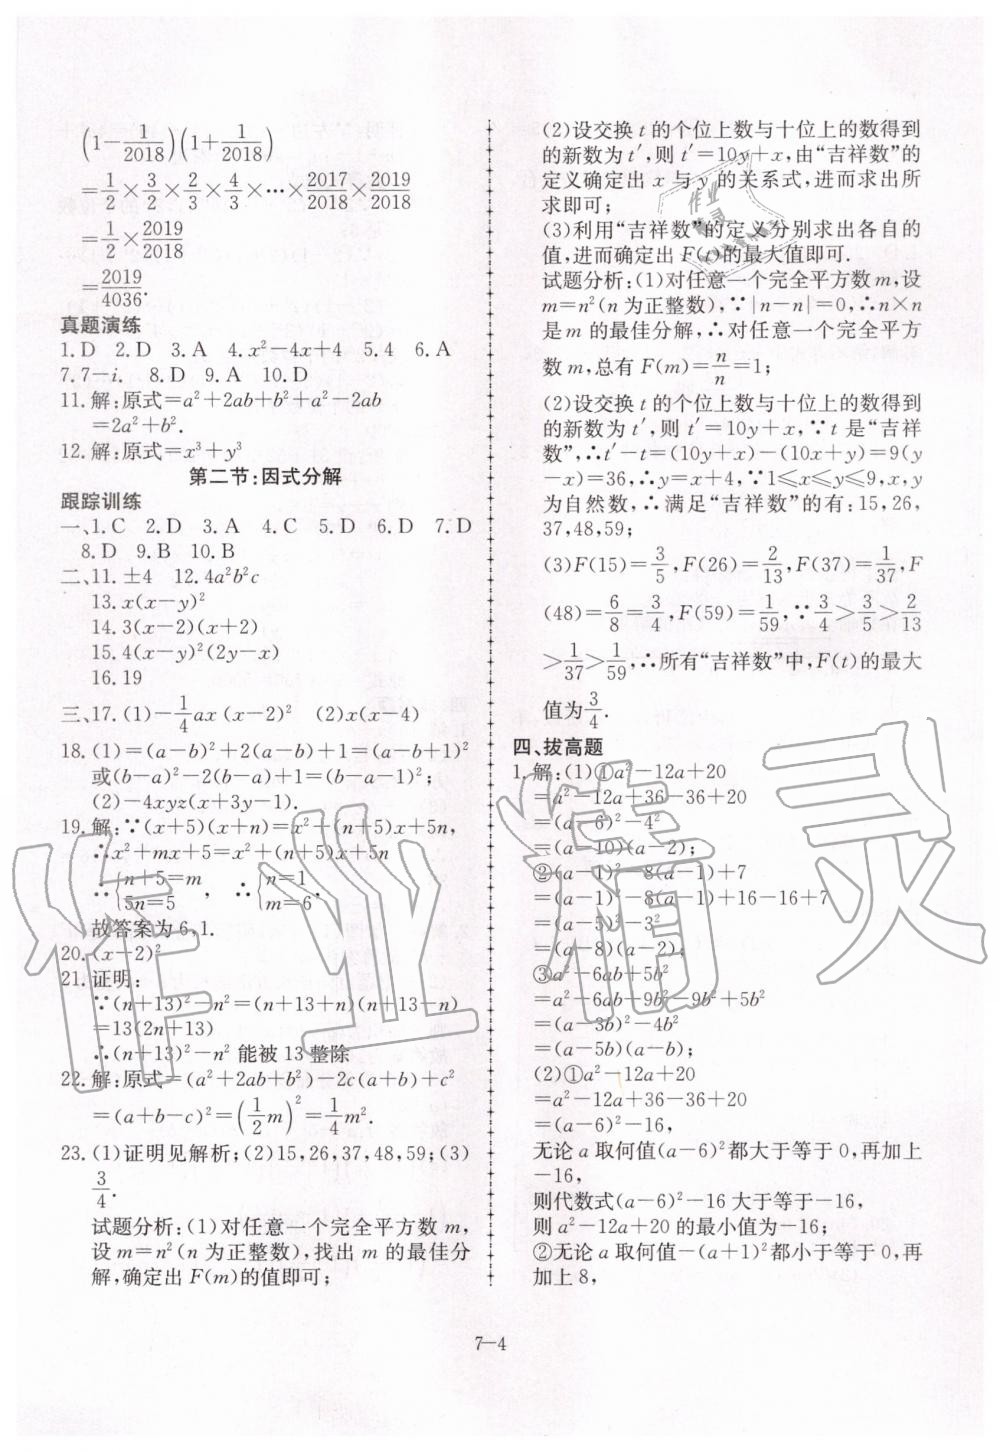 (1−1/2018)(1+1/2018)
=1/2×3/2×2/3×4/3×⋯×2017/2018×2019/2018
=1/2×2019/2018
=2019/4036.
真题演练
1.D 2.D 3.A 4.x²−4x+4 5.4 6.A
7.7−i. 8.D 9.A 10.D
11.解:原式=a²+2ab+b²+a²−2ab
=2a²+b².
12.解:原式=x³+y³
第二节:因式分解
跟踪训练
一、1.C 2.D 3.A 4.C 5.D 6.D 7.D
8.D 9.B 10.B
二、11.±4 12.4a²b²c
13.x(x−y)²
14.3(x−2)(x+2)
15.4(x−y)²(2y−x)
16.19
三、17.(1)−1/4ax(x−2)² (2)x(x−4)
18.(1)=(a−b)²+2(a−b)+1=(a−b+1)²
或(b−a)²−2(b−a)+1=(b−a−1)²;
(2)−4xyz(x+3y−1).
19.解:∵(x+5)(x+n)=x²+(n+5)x+5n,
∴x²+mx+5=x²+(n+5)x+5n
∴{n+5=m 5n=5, ∴{n=1 m=6,
故答案为6,1.
20.(x−2)²
21.证明:
∵(n+13)²−n²=(n+13+n)(n+13−n)
=13(2n+13)
∴(n+13)²−n²能被13整除
22.解:原式=(a²+2ab+b²)−2c(a+b)+c²
=(a+b−c)²=(1/2m)²=1/4m².
23.(1)证明见解析;(2)15,26,37,48,59;(3)
3/4.
试题分析:(1)对任意一个完全平方数m,
设m=n²(n为正整数),找出m的最佳分
解,确定出F(m)的值即可;
(2)设交换t的个位上数与十位上的数得到
的新数为t′,则t′=10y+x,由“吉祥数”的
定义确定出x与y的关系式,进而求出所
求即可;
(3)利用“吉祥数”的定义分别求出各自的
值,进而确定出F(t)的最大值即可.
试题分析:(1)对任意一个完全平方数m,设
m=n²(n为正整数),∵|n−n|=0,∴n×n
是m的最佳分解,∴对任意一个完全平方
数m,总有F(m)=n/n=1;
(2)设交换t的个位上数与十位上的数得到
的新数为t′,则t′=10y+x,∵t是“吉祥
数”,∴t′−t=(10y+x)−(10x+y)=9(y
−x)=36,∴y=x+4,∵1≤x≤y≤9,x,y
为自然数,∴满足“吉祥数”的有:15,26,
37,48,59;
(3)F(15)=3/5,F(26)=2/13,F(37)=1/37,F
(48)=6/8=3/4,F(59)=1/59,∵3/4>3/5>2/13
>1/37>1/59,∴所有“吉祥数”中,F(t)的最大
值为3/4.
四、拔高题
1.解:(1)①a²−12a+20
=a²−12a+36−36+20
=(a−6)²−4²
=(a−10)(a−2);
②(a−1)²−8(a−1)+7
=(a−1)²−8(a−1)+16−16+7
=(a−5)²−3²
=(a−8)(a−2);
③a²−6ab+5b²
=a²−6ab+9b²−9b²+5b²
=(a−3b)²−4b²
=(a−5b)(a−b);
(2)①a²−12a+20
=a²−12a+36−36+20
=(a−6)²−16,
无论a取何值(a−6)²都大于等于0,再加上
−16,
则代数式(a−6)²−16大于等于−16,
则a²−12a+20的最小值为−16;
②无论a取何值−(a+1)²都小于等于0,再
加上8,
7—4
作业精灵